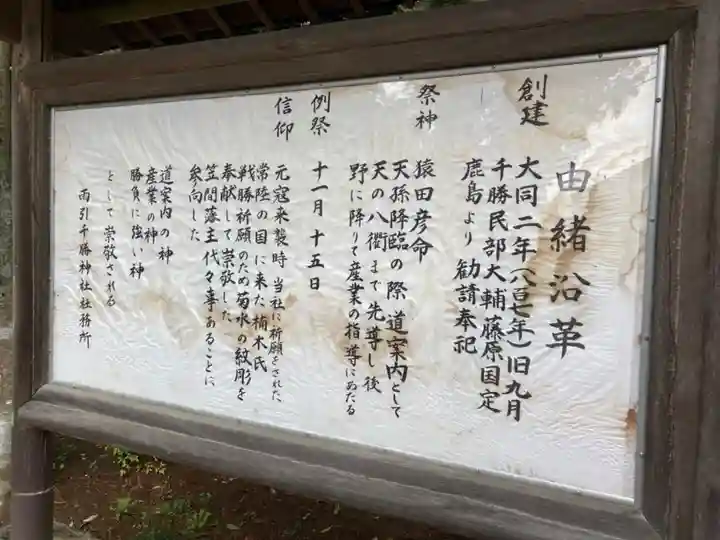 由緒沿革
創建
大同二年(八百七年)旧九月
千勝民部大輔藤原国定
鹿島より勧請奉祀
祭神
猿田彦命
天孫降臨の際道案内として
天の八衢まで先導し後
野に降りて産業の指導にあたる
例祭
十一月十五日
信仰
元寇来襲時当社に祈願をされた、
常陸の国に来た楠木氏
戦勝祈願のため菊水の紋彫を
奉献して崇敬した
笠間藩主代々事あることに
参向した
道案内の神
産業の神
勝負に強い神
として崇敬される
雨引千勝神社社務所